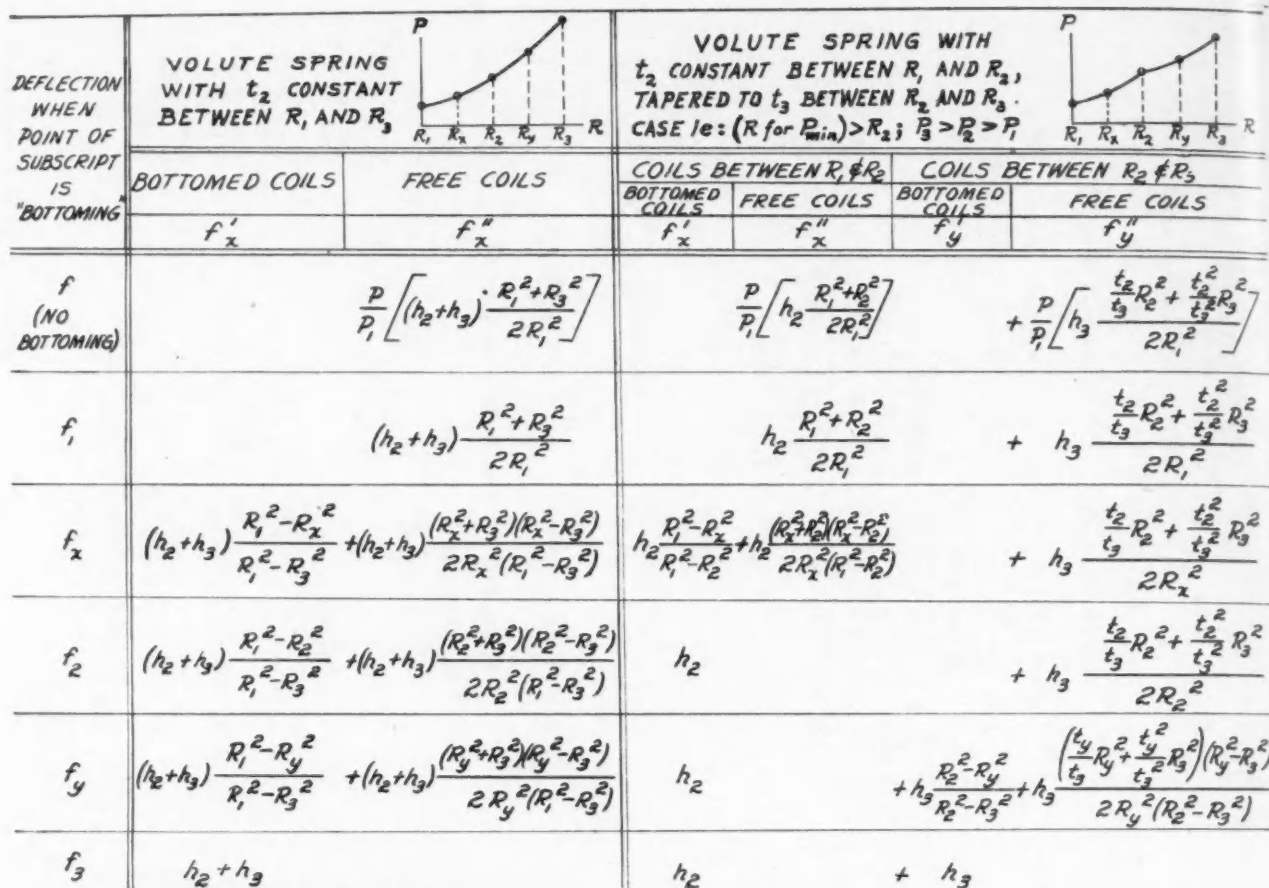 DEFLECTION
WHEN
POINT OF
SUBSCRIPT
IS
"BOTTOMING"
VOLUTE SPRING
WITH t₂ CONSTANT
BETWEEN R₁ AND R₃
P
R₁ Rₓ R₂ R_y R₃ R
VOLUTE SPRING WITH
t₂ CONSTANT BETWEEN R₁ AND R₂,
TAPERED TO t₃ BETWEEN R₂ AND R₃.
CASE 1e: (R for P_min) > R₂; P₃ > P₂ > P₁
P
R₁ Rₓ R₂ R_y R₃ R
BOTTOMED COILS FREE COILS
f'ₓ f''ₓ
COILS BETWEEN R₁ & R₂ COILS BETWEEN R₂ & R₃
BOTTOMED COILS FREE COILS BOTTOMED COILS FREE COILS
f'ₓ f''ₓ f'_y f''_y
f (NO BOTTOMING) P/P₁ [(h₂+h₃)·(R₁²+R₃²)/(2R₁²)] P/P₁ [h₂ (R₁²+R₂²)/(2R₁²)] + P/P₁ [h₃ (t₂/t₃ R₂² + t₂²/t₃² R₃²)/(2R₁²)]
f₁ (h₂+h₃) (R₁²+R₃²)/(2R₁²) h₂ (R₁²+R₂²)/(2R₁²) + h₃ (t₂/t₃ R₂² + t₂²/t₃² R₃²)/(2R₁²)
fₓ (h₂+h₃) (R₁²-Rₓ²)/(R₁²-R₃²) +(h₂+h₃) (Rₓ²+R₃²)(Rₓ²-R₃²)/(2Rₓ²(R₁²-R₃²)) h₂ (R₁²-Rₓ²)/(R₁²-R₂²) +h₂ (Rₓ²+R₂²)(Rₓ²-R₂²)/(2Rₓ²(R₁²-R₂²)) + h₃ (t₂/t₃ R₂² + t₂²/t₃² R₃²)/(2Rₓ²)
f₂ (h₂+h₃) (R₁²-R₂²)/(R₁²-R₃²) +(h₂+h₃) (R₂²+R₃²)(R₂²-R₃²)/(2R₂²(R₁²-R₃²)) h₂ + h₃ (t₂/t₃ R₂² + t₂²/t₃² R₃²)/(2R₂²)
f_y (h₂+h₃) (R₁²-R_y²)/(R₁²-R₃²) +(h₂+h₃) (R_y²+R₃²)(R_y²-R₃²)/(2R_y²(R₁²-R₃²)) h₂ +h₃ (R₂²-R_y²)/(R₂²-R₃²) +h₃ (t_y/t₃ R_y² + t_y²/t₃² R₃²)(R_y²-R₃²)/(2R_y²(R₂²-R₃²))
f₃ h₂+h₃ h₂ + h₃